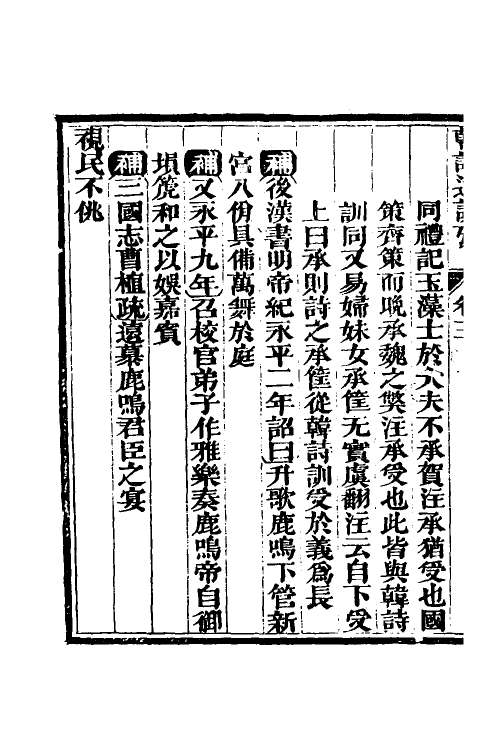 同禮記玉藻士於大夫不承賀注承猶受也國
策齊策而晚承魏之獘注承受也此皆與韓詩
訓同又易婦妹女承筐无實虞翻注云自下受
上曰承則詩之承筐從韓詩訓受於義爲長
補後漢書明帝紀永平二年詔曰升歌鹿鳴下管新
宮八佾具備萬舞於庭
補又永平九年召校官弟子作雅樂奏鹿鳴帝自御
塤篪和之以娛嘉賓
補三國志曹植疏遠慕鹿鳴君臣之宴
視民不佻